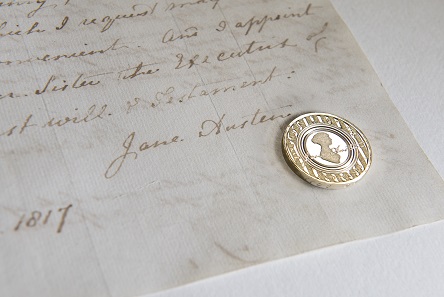 which I request may
convenient. And I appoint
Sister the Executrix of
last will & Testament.
Jane Austen
1817